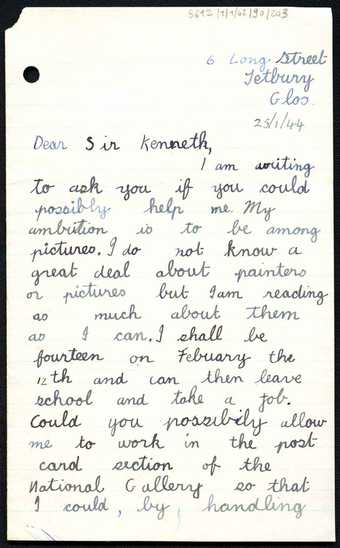 6 Long Street
Tetbury
Glos.
25/1/44
Dear Sir Kenneth,
I am writing
to ask you if you could
possibly help me. My
ambition is to be among
pictures. I do not know a
great deal about painters
or pictures but I am reading
as much about them
as I can. I shall be
fourteen on Febuary the
12th and can then leave
school and take a job.
Could you possibily allow
me to work in the post
card section of the
National Gallery so that
I could, by, handling